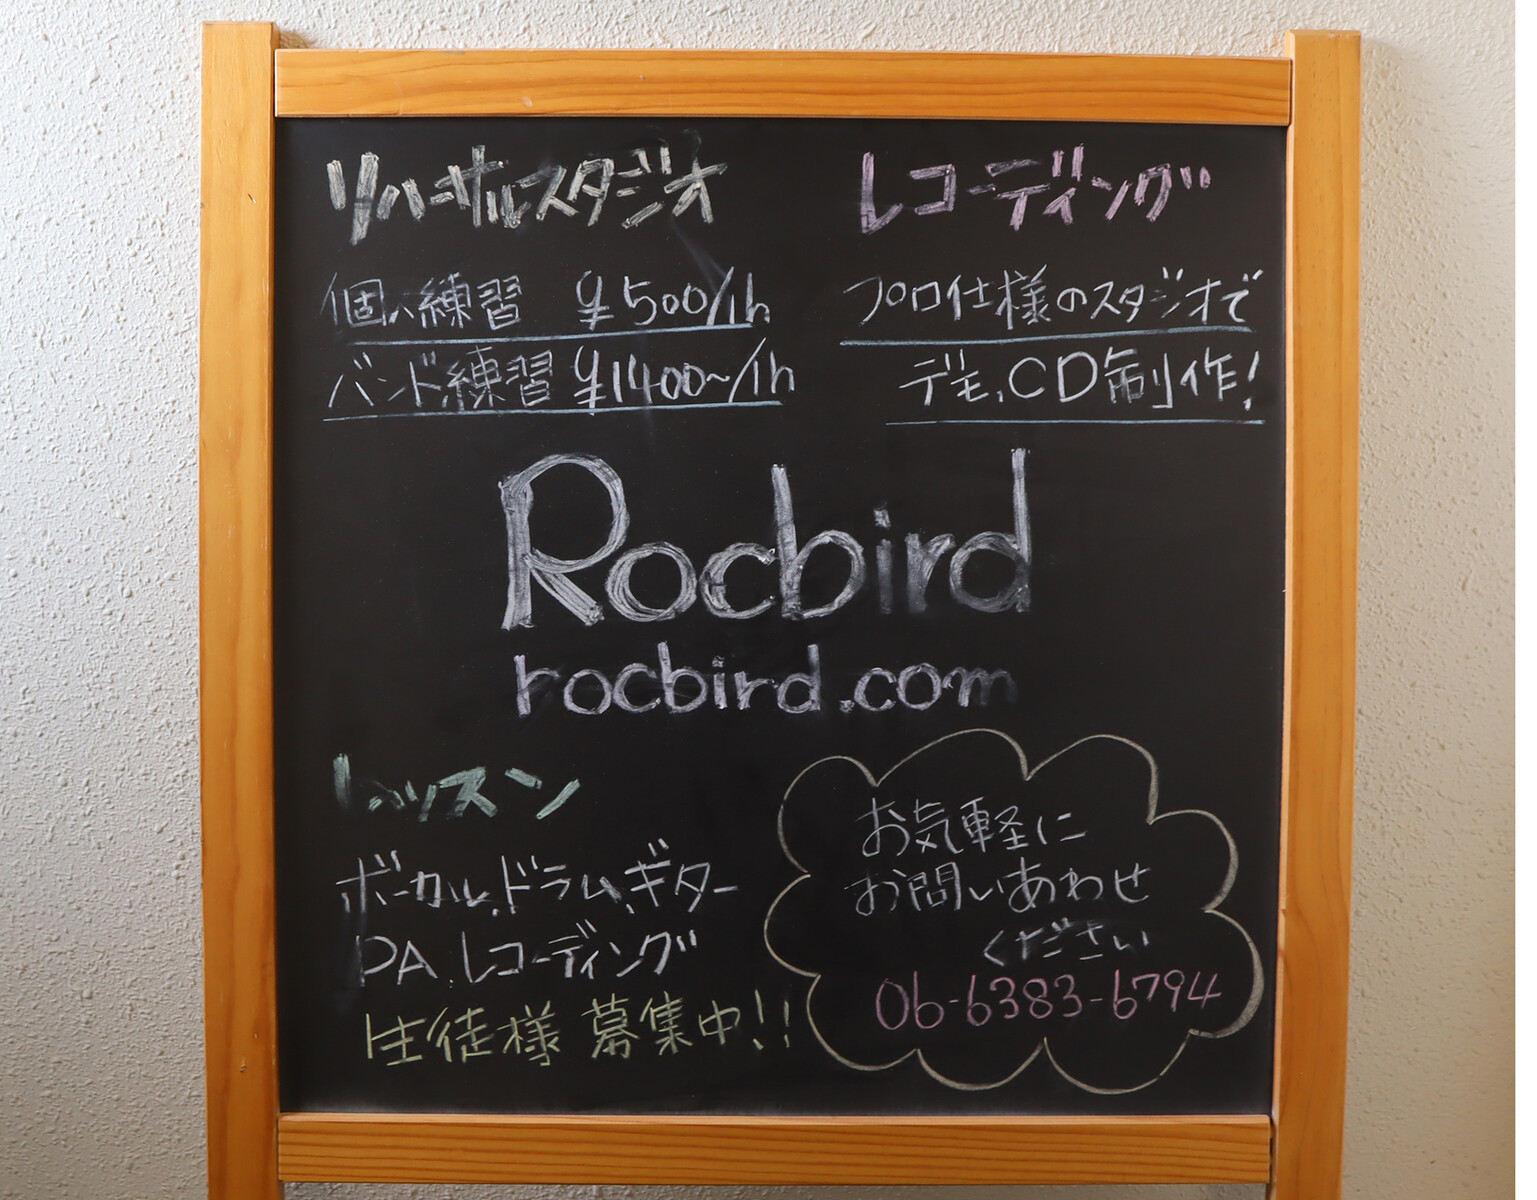 リハーサルスタジオ
個人練習 ¥500/1h
バンド練習 ¥1400~/1h
レコーディング
プロ仕様のスタジオで
デモ、CD制作!
Rocbird
rocbird.com
レッスン
ボーカル、ドラム、ギター
PA、レコーディング
生徒様 募集中!!
お気軽に
お問いあわせ
ください
06-6383-6794